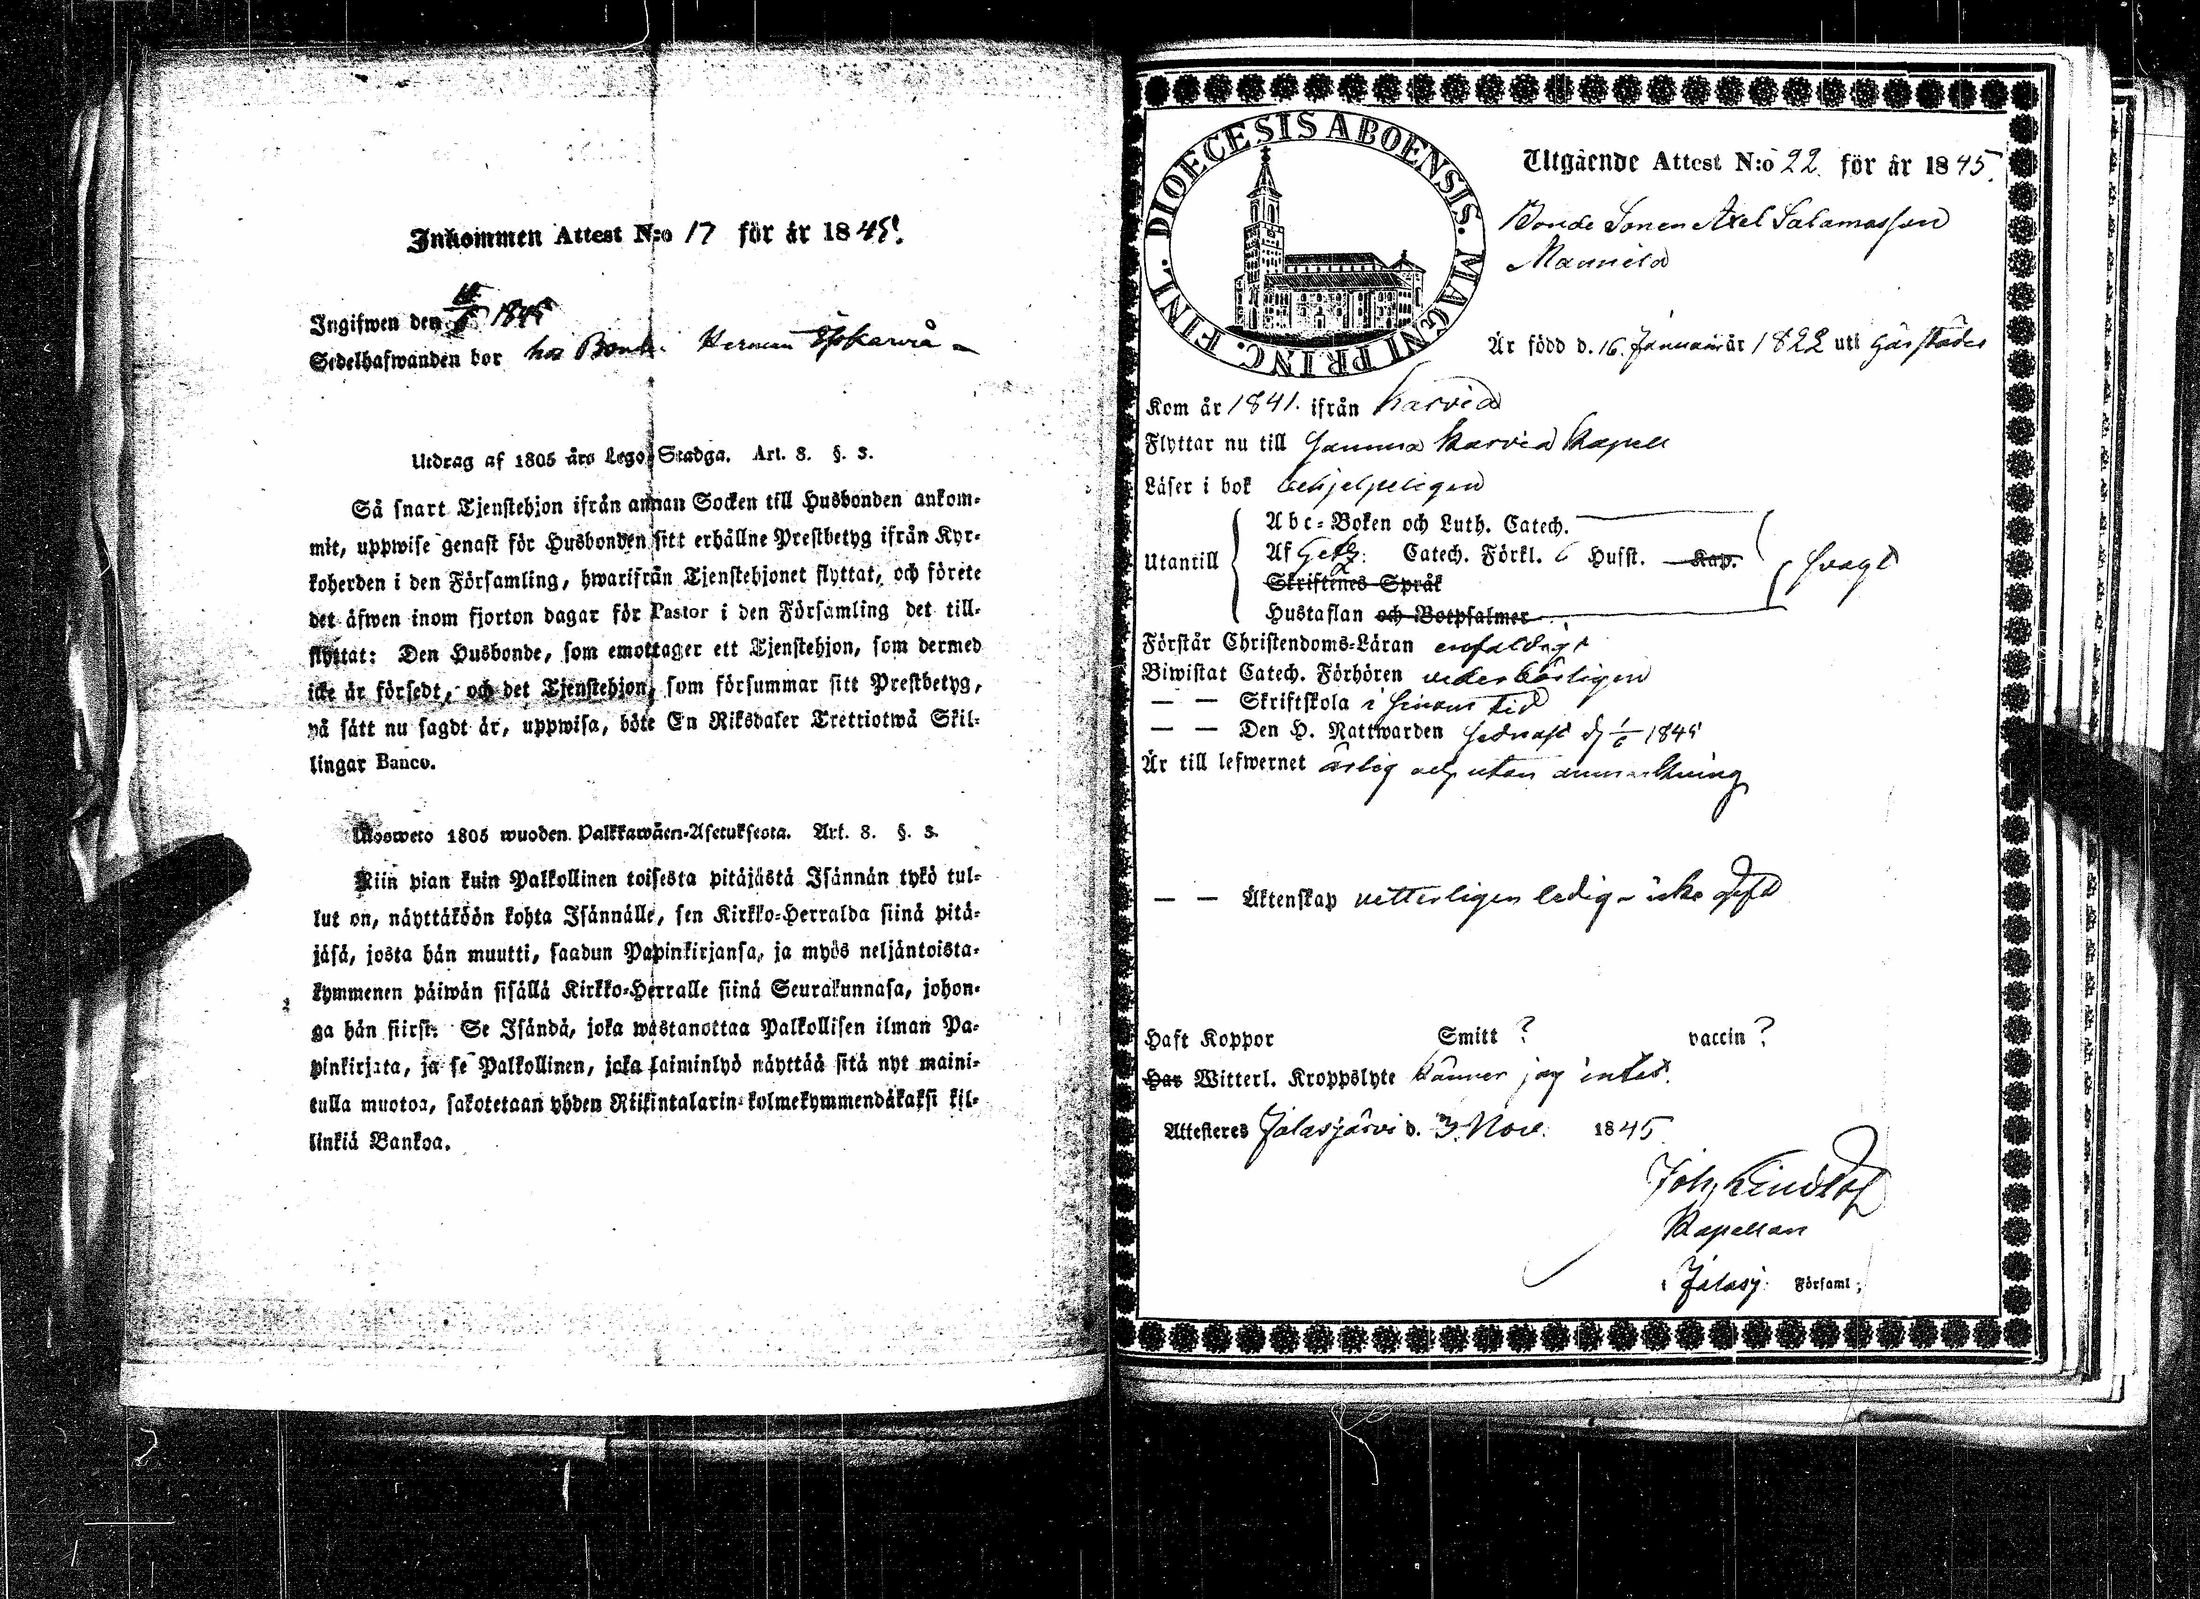 Inkommen Attest N:o 17 för år 1845.
Ingifwen den 1845
Sedelhafwanden bor hos Bonden Herman
Utdrag af 1805 års Lego-Stadga. Art. 8. §. 3.
Så snart Tjenstehjon ifrån annan Socken till Husbonden ankom-
mit, uppwise genast för Husbonden sitt erhållne Prestbetyg ifrån Kyr-
koherden i den Församling, hwarifrån Tjenstehjonet flyttat, och förete
det äfwen inom fjorton dagar för Pastor i den Församling det till-
flyttat: Den Husbonde, som emottager ett Tjenstehjon, som dermed
icke är försedt, och det Tjenstehjon, som försummar sitt Prestbetyg,
på sätt nu sagdt är, uppwisa, böte En Riksdaler Trettiotwå Skil-
lingar Banco.
Ulosweto 1805 wuoden Palkkawäen-Asetuksesta. Art. 8. §. 3.
Niin pian kuin Palkollinen toisesta pitäjästä Isännän tykö tul-
lut on, näyttäköön kohta Isännälle, sen Kirkko-Herralda siinä pitä-
jäsä, josta hän muutti, saadun Papinkirjansa, ja myös neljäntoista-
kymmenen päiwän sisällä Kirkko-Herralle siinä Seurakunnasa, johon-
ga hän siirst: Se Isändä, joka wastanottaa Palkollisen ilman Pa-
pinkirjata, ja se Palkollinen, joka laiminlyö näyttää sitä nyt maini-
tulla muotoa, sakotetaan yhden Riikintalarin kolmekymmendäkaksi kil-
linkiä Bankoa.
DIOECESIS ABOENSIS. MAGNI PRINC. FINL.
Utgående Attest N:o 22 för år 1845.
Bonde Sonen Axel Salamonsson
Mannila
Är född d. 16. Januari år 1822 uti härstädes
Kom år 1841. ifrån Karvia
Flyttar nu till samma Karvia Kapell
Läser i bok behjelpeligen
Utantill
Abc-Boken och Luth. Catech.
Af Catech. Förkl. 6 Hufst. Kap.
svagt
Skriftenes Språk
Hustaflan och Botpsalmer
Förstår Christendoms-Läran enfaldigt
Biwistat Catech. Förhören vederbörligen
— — Skriftskola i sinom tid
— — Den H. Nattwarden sednast d 1/6 1845
Är till lefwernet ärlig och utan anmärkning
— — Äktenskap vetterligen ledig icke
Haft Koppor Smitt ? vaccin ?
Har Witterl. Kroppslyte känner jag intet.
Attesteres Jalasjärvi d. 3 Nov. 1845
Joh. Lindlöf
Kapellan
i Jalasj: Församl;